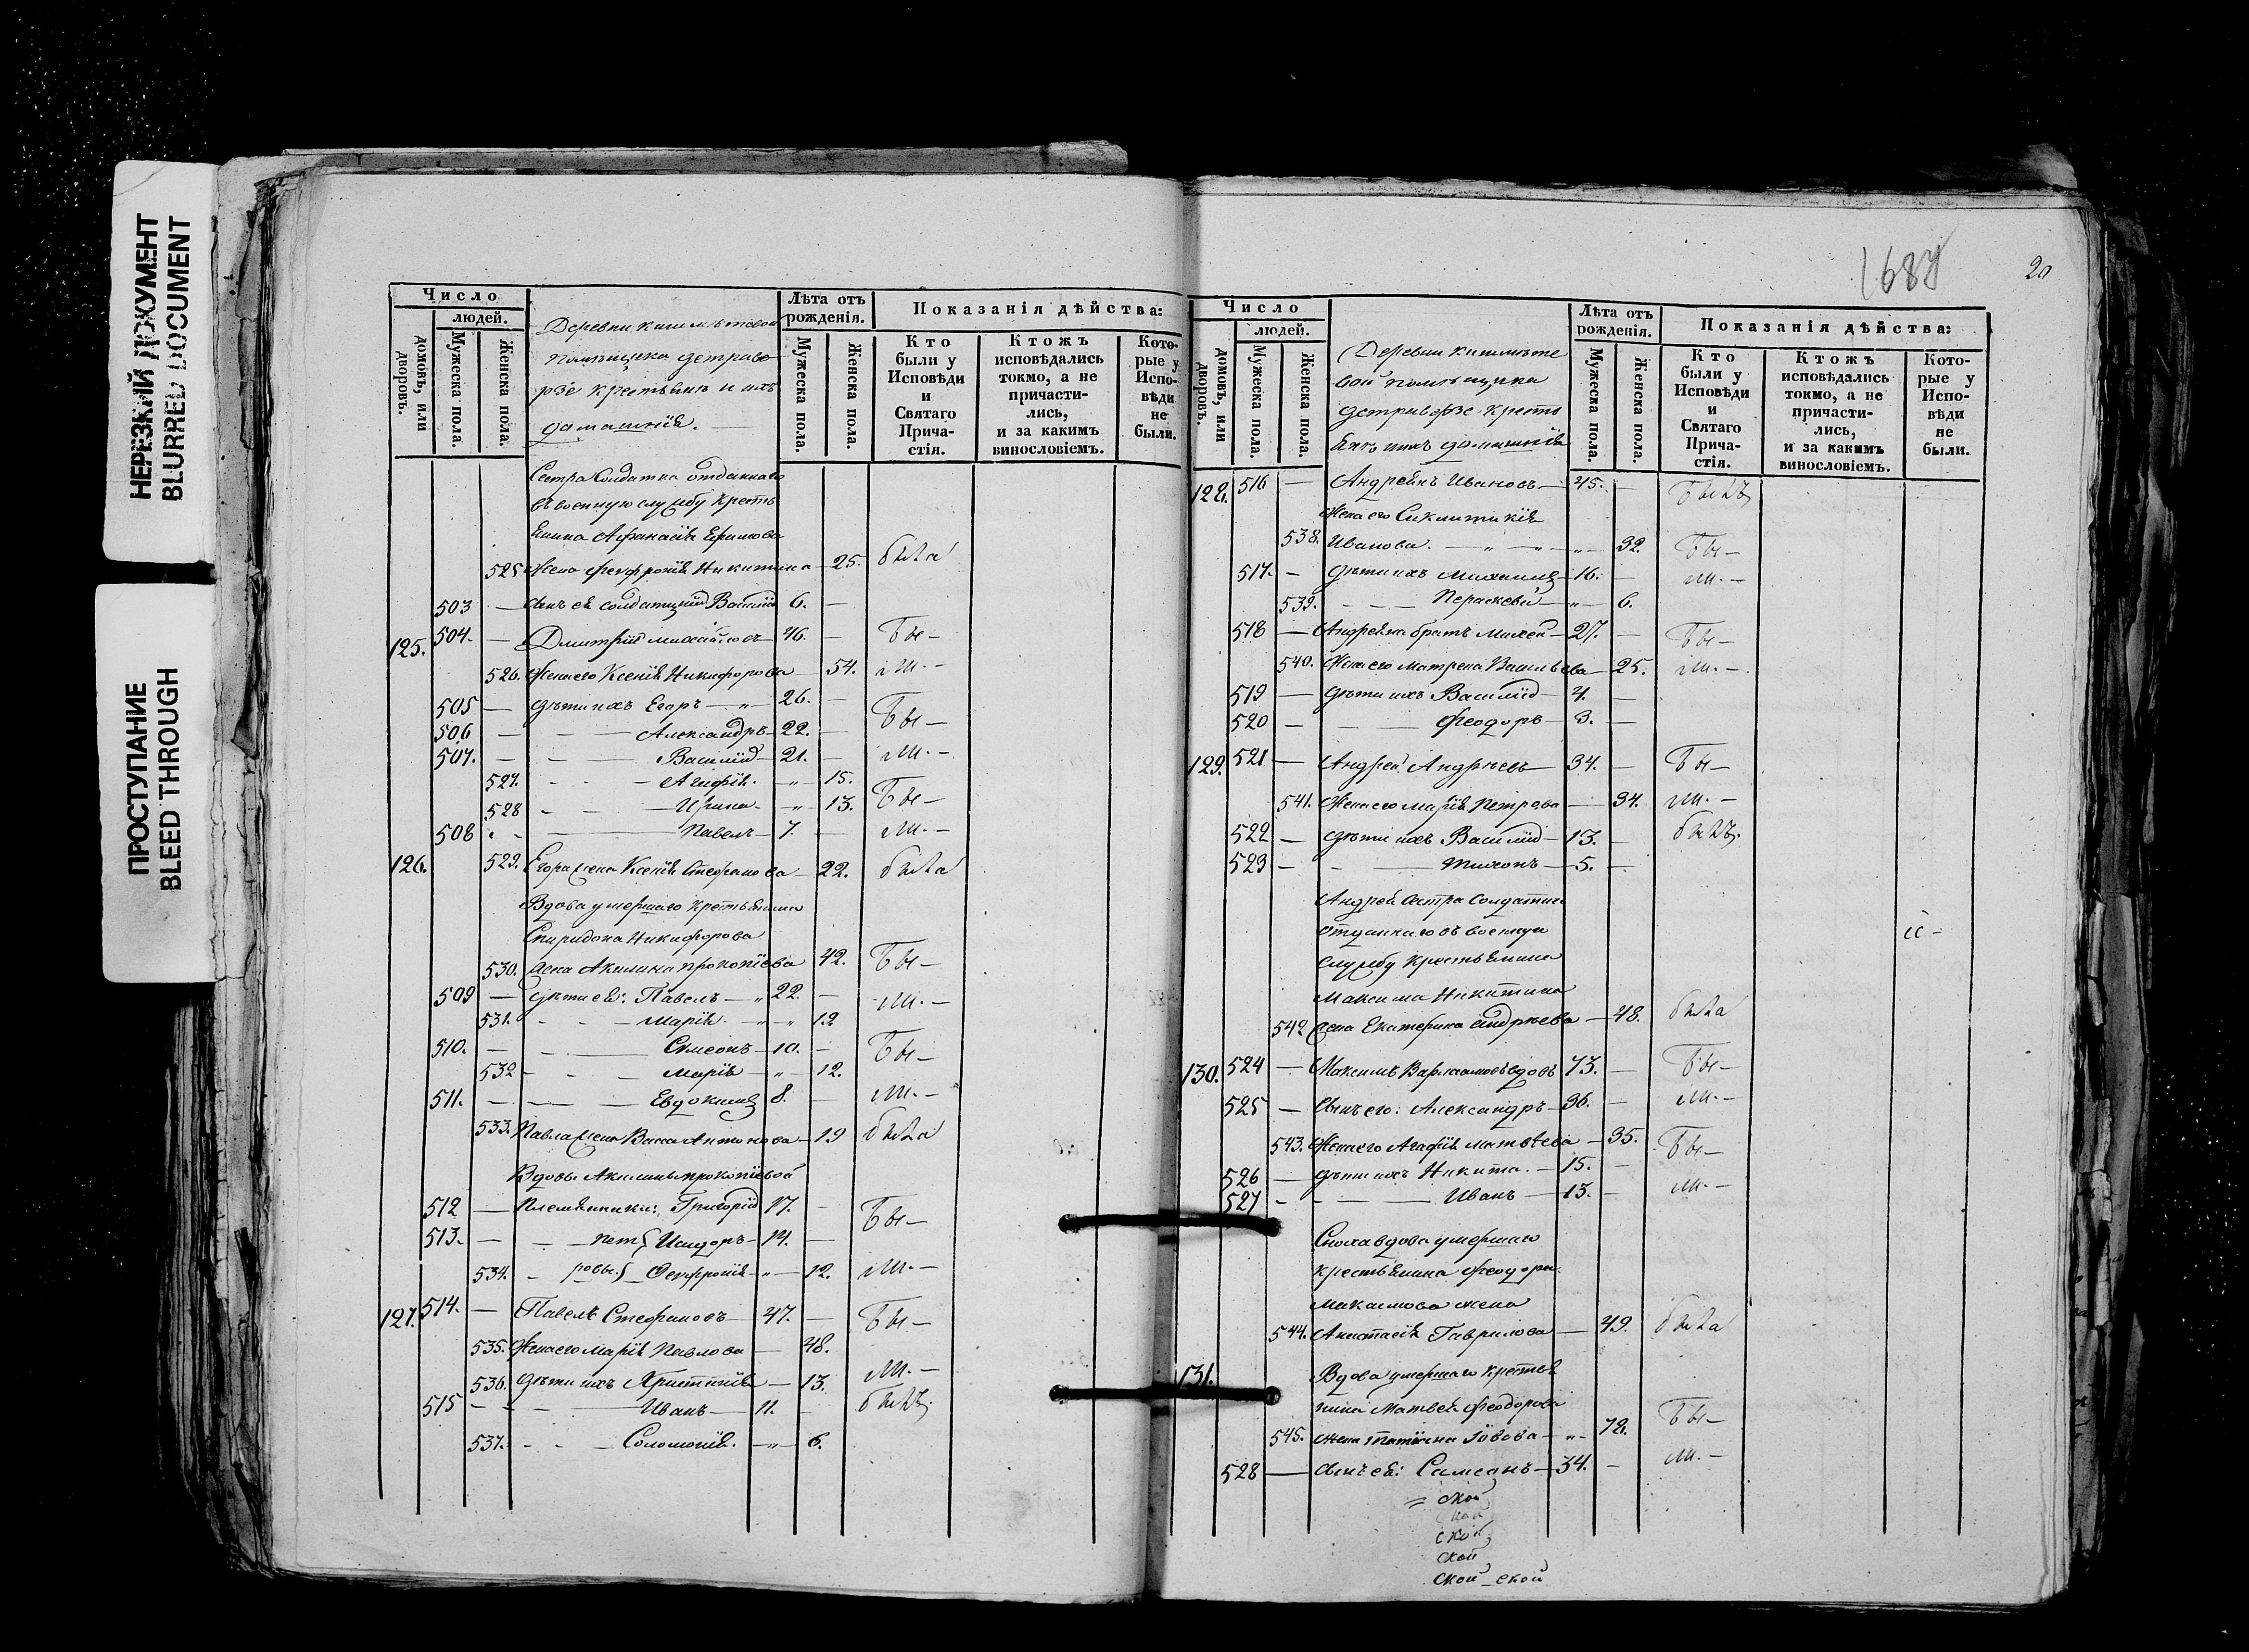 НЕРЕЗКИЙ ДОКУМЕНТ
BLURRED DOCUMENT
ПРОСТУПАНИЕ
BLEED THROUGH
1687
20
Число
людей.
домовъ, или дворовъ.
Мужеска пола.
Женска пола.
Деревни
помѣщика
крестьянъ и ихъ
домашнія.
Лѣта отъ рожденія.
Мужеска пола.
Женска пола.
Показанія дѣйства:
Кто были у Исповѣди и Святаго Причастія.
Ктожъ исповѣдались токмо, а не причастились, и за какимъ винословіемъ.
Которые у Исповѣди не были.
Сестра Солдатка отданнаго
въ военную службу кресть
янина Афанасія Ефимова
525 жена Феофронія Никитина — 25. была
503 — сынъ ея солдатскій Василій 6. —
125. 504. — Дмитрій Михайловъ — 46. — Бы —
526. Жена его Ксенія Никифорова — 54. ли. —
505 — дѣти ихъ Егоръ — „ — 26. —
506 — — — Александръ — 22. — Бы —
507. — — — Василій — 21. — ли. —
527. — — — Агафія. — „ — 15.
528 — — — Ирина. — „ — 13. Бы —
508 — — — Павелъ — 7. — ли. —
126. 529. Егора жена Ксенія Стефанова — 22. была
Вдова умершаго крестьянина
Спиридона Никифорова
530. жена Акилина Прокопіева 42. Бы —
509 — дѣти ея: Павелъ — „ 22. — ли. —
531. — — — Марія. — „ — 19
510. — — — Симеонъ — 10. — Бы —
532 — — — Марія — „ — 12.
511. — — — Евдокимъ 8. — ли. —
533. Павла жена Васса Антонова — 19 была
Вдовы Акилины Прокопіевой
512 — Племянники: Григорій 17. — Бы —
513. — — Пет{ Исидоръ — 14. —
534. — ровы.{ — Феофронія — „ — 12. ли. —
127. 514. — Павелъ Стефановъ — 47. — Бы —
535. Жена его Марія Павлова — 48.
536. Дѣти ихъ Христинія — 13. ли. —
515 — — — Иванъ — 11. — былъ.
537. — — — Соломонія. — „ — 6.
Число
людей.
домовъ, или дворовъ.
Мужеска пола.
Женска пола.
Деревни
вой помѣщика
кресть
янъ и ихъ домашнія
Лѣта отъ рожденія.
Мужеска пола.
Женска пола.
Показанія дѣйства:
Кто были у Исповѣди и Святаго Причастія.
Ктожъ исповѣдались токмо, а не причастились, и за какимъ винословіемъ.
Которые у Исповѣди не были.
128. 516 — Андреянъ Ивановъ — 45. — Былъ
Жена его Синклитикія
538. Иванова. — „ — „ — „ — 32. Бы —
517. — дѣти ихъ Михаилъ — 16. — ли. —
539. — — — Пераскева — „ — 6.
518 — Андреяна братъ Михей — 27. — Бы —
540. Жена его Матрена Васильева — 25. ли. —
519 — дѣти ихъ Василій — 4. —
520 — — — Феодоръ — 3. —
129. 521 — Андрей Андреевъ — 34. — Бы —
541. Жена его Марія Петрова — 34. ли. —
522 — дѣти ихъ Василій — 13. — былъ.
523 — — — Тихонъ — 5. —
Андрея сестра Солдатка
отданнаго въ военную
службу крестьянина
Максима Никитина
542 жена Екатерина Андреева — 48. была
130. 524 — Максимъ Варлаамовъ вдовъ 73. — Бы —
525 — Сынъ его: Александръ — 36. — ли. —
543. Жена его Агафія Матвѣева — 35. Бы —
526 — дѣти ихъ Никита. — 15. —
527 — — — Иванъ — 13. — ли. —
Сноха вдова умершаго
крестьянина Феодора
Максимова жена
544. Анастасія Гаврилова — 49. была
131. Вдова умершаго кресть
янина Матвея Феодорова
545. жена Татіана Іовова — „ — 78. Бы —
528 — сынъ ея: Самсонъ — 34. — ли. —
= ской
ской
ской
ской
ской — ской